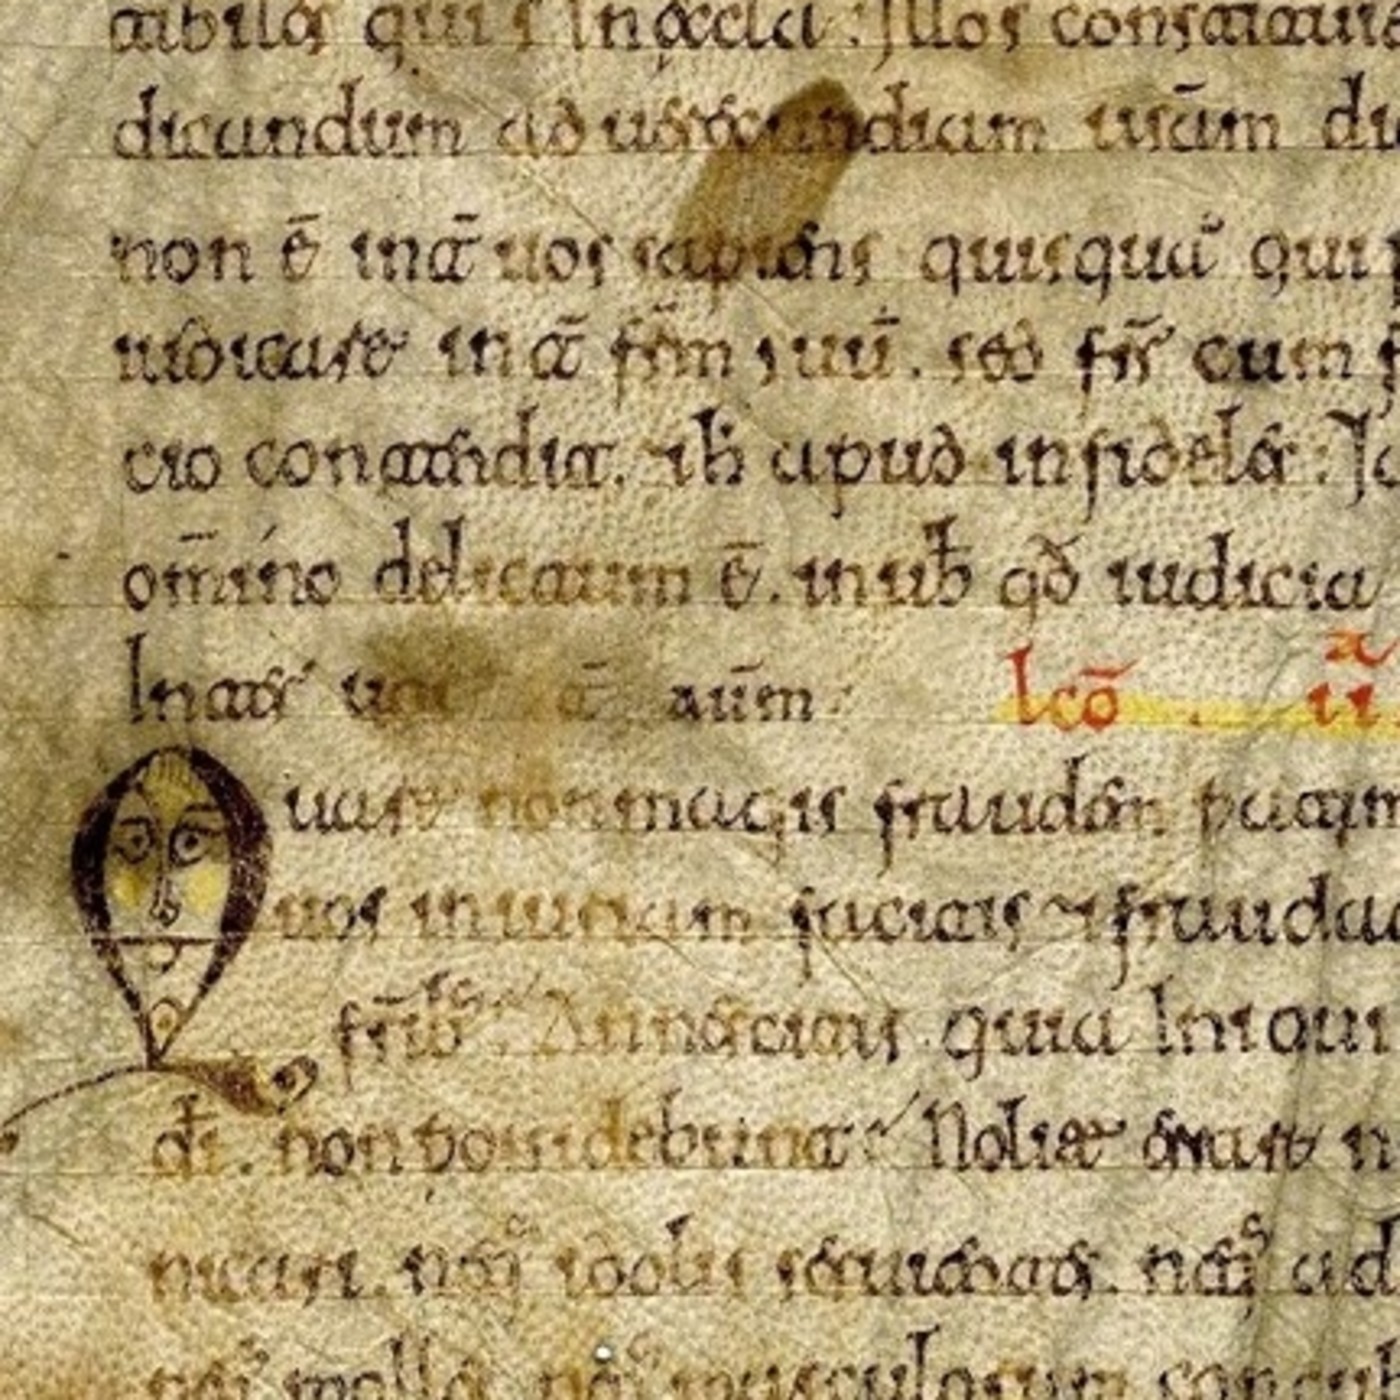 tibiles qui s̄ In eccla : Illos constituit
dicandum ad uerecundiam ur̄am di
non ē int̄ uos sapiens quisquā qui p
iudicare int̄ frm̄ suū . sed fr̄ cum f
cio contendit . ih̄ apud infideles : Ja
om̄ino delictum ē . in uob̄ qd̄ iudicia
Inter uos
lcō . iia
Quare non magis fraudem patim
uos iniuriam facitis et frauda
frīb : An nescitis quia Iniqui
dī . non possidebunt : Nolite errare n
nicari . neq idolis seruientes . neq ad
neq molles neq masculorum concub